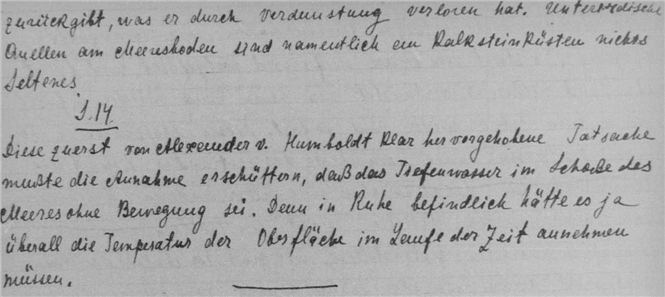 zurückgibt, was er durch Verdunstung verloren hat. Unterirdische
Quellen am Meeresboden sind namentlich an Kalksteinküsten nichts
Seltenes
S. 14.
Diese zuerst von Alexander v. Humboldt klar hervorgehobene Tatsache
mußte die Annahme erschüttern, daß das Tiefenwasser im Schoße des
Meeres ohne Bewegung sei. Denn in Ruhe befindlich hätte es ja
überall die Temperatur der Oberfläche im Laufe der Zeit annehmen
müssen.